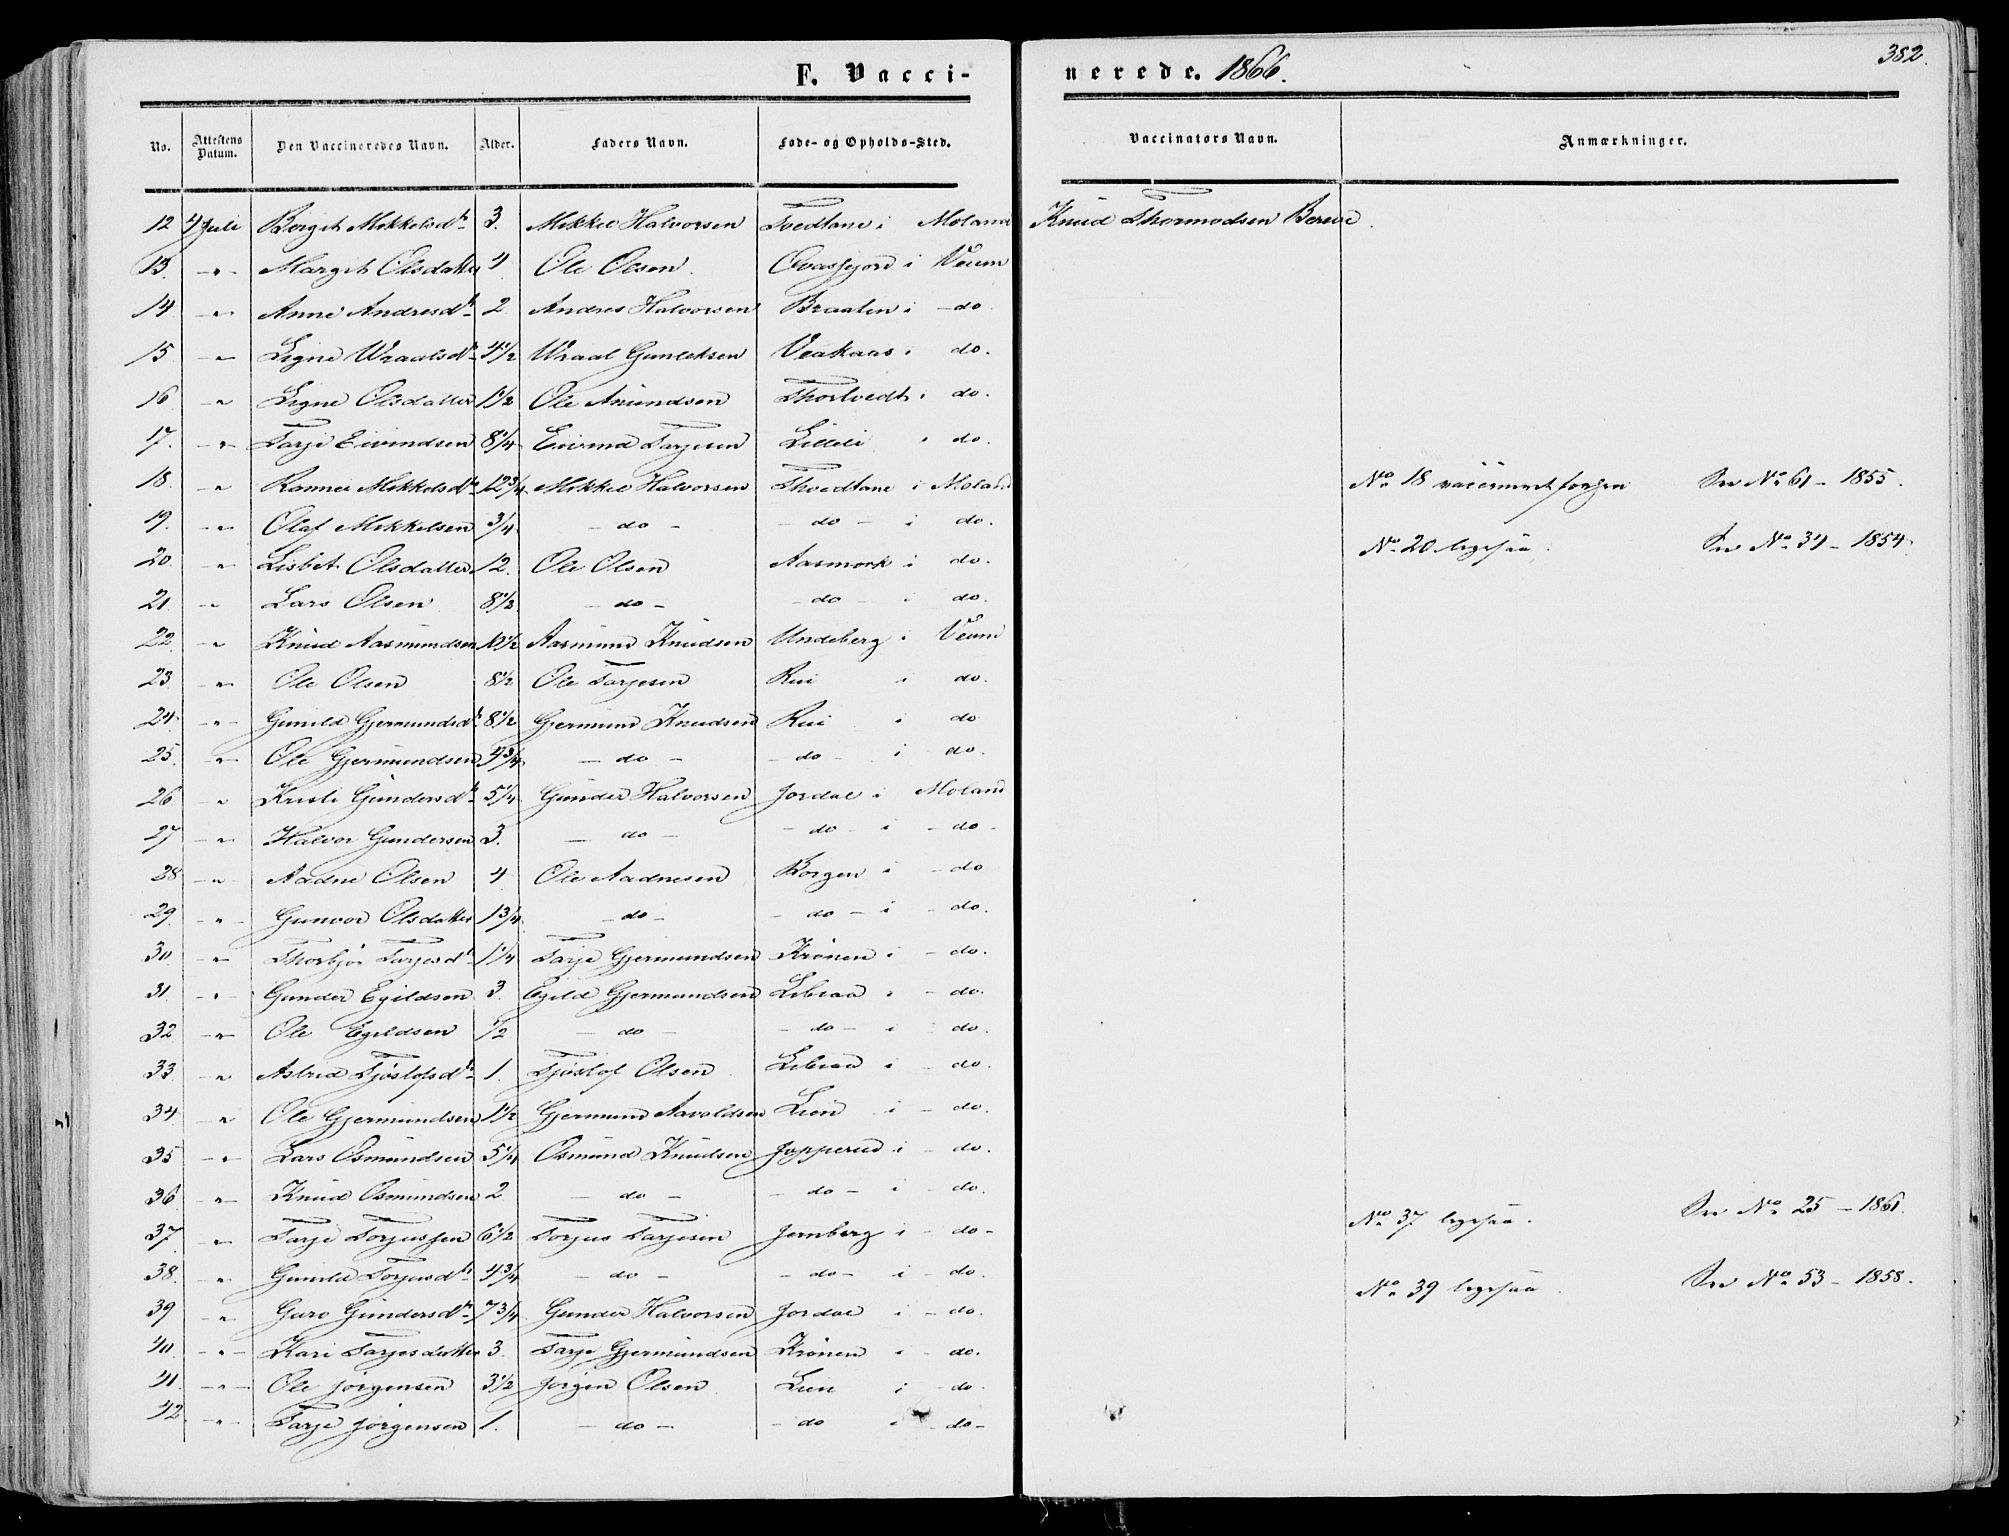 F. Vaccinerede. 1866. 382.
No. Attestens Datum. Den Vaccineredes Navn. Alder. Faders Navn. Føde- og Opholds-Sted. Vaccinators Navn. Anmærkninger.
12 4 Juli Borgit Mikkelsdr 3. Mikkel Halvorsen Tvedtane i Moland Knud Thormodsen
13. -"- Margit Olsdatter 4 Ole Olsen. i Veum
14 -"- Anne Andresdr 2 Andres Halvorsen Braaten i - do
15. -"- Signe Wraalsdr 4 1/2 Wraal Gunleksen Veakaas i do.
16 -"- Signe Olsdatter 1 1/2 Ole Anundsen Thortvedt i do.
17. -"- Tarje Eivindsen 8 1/4 Eivind Tarjesen Lilleli i do.
18. -"- Rannei Mikkelsdr 12 3/4 Mikkel Halvorsen Thvedtane i Moland No 18 See No 61 - 1855.
19. -"- Olaf Mikkelsen 3/4 - do - - do - i do.
20. -"- Lisbet Olsdatter 12. Ole Olsen Aasmork i do. No 20 ligesaa. See No 34 - 1854
21. -"- Lars Olsen 8 1/2 - do - - do - i do.
22. -"- Knud Aasmundsen 10 1/2 Aasmund Knudsen Undeberg i Veum
23 -"- Ole Olsen 8 1/2 Ole Tarjesen Rui i do.
24 -"- Gunild Gjermundsdr 8 1/2 Gjermund Knudsen Rui i do
25. -"- Ole Gjermundsen 4 3/4 - do - - do - i do.
26 -"- Kristi Gundersdr 5 1/4 Gunder Halvorsen Jordal i Moland
27 -"- Halvor Gundersen 3. - do - - do - i - do -
28 -"- Aadne Olsen 4 Ole Aadnesen Borgen i - do
29. -"- Gunvor Olsdatter 1 3/4 - do - - do - i - do.
30. -"- Thorbjør Tarjesdr 1 1/4 Tarje Gjermundsen Krónen i - do.
31. -"- Gunder Egildsen 3. Egild Gjermundsen Libraa i - do.
32 -"- Ole Egildsen 1/2 - do - - do - i - do.
33. -"- Astrid Tjøstofsdr 1. Tjøstof Olsen. Libraa i - do.
34. -"- Ole Gjermundsen 1 1/2 Gjermund Aavoldsen Lien i - do.
35 -"- Lars Osmundsen 5 1/4 Osmund Knudsen Jopperud i - do.
36 -"- Knud Osmundsen 2 - do - - do - i - do.
37. -"- Tarje Torjussen 6 1/2 Torjus Tarjesen Jernberg i - do - No 37 ligesaa. See No 25 - 1861.
38. -"- Gunild Torjusdr 4 3/4 - do - - do - i - do.
39 -"- Garo Gundersdr 7 3/4 Gunder Halvorsen Jordal i - do. No 39 ligesaa. See No 53 - 1858.
40. -"- Kari Tarjesdatter 3. Tarje Gjermundsen Krónen i - do.
41. -"- Ole Jørgensen 3 1/2 Jørgen Olsen. Lien i - do.
42 -"- Tarje Jørgensen 1. - do - - do i - do -